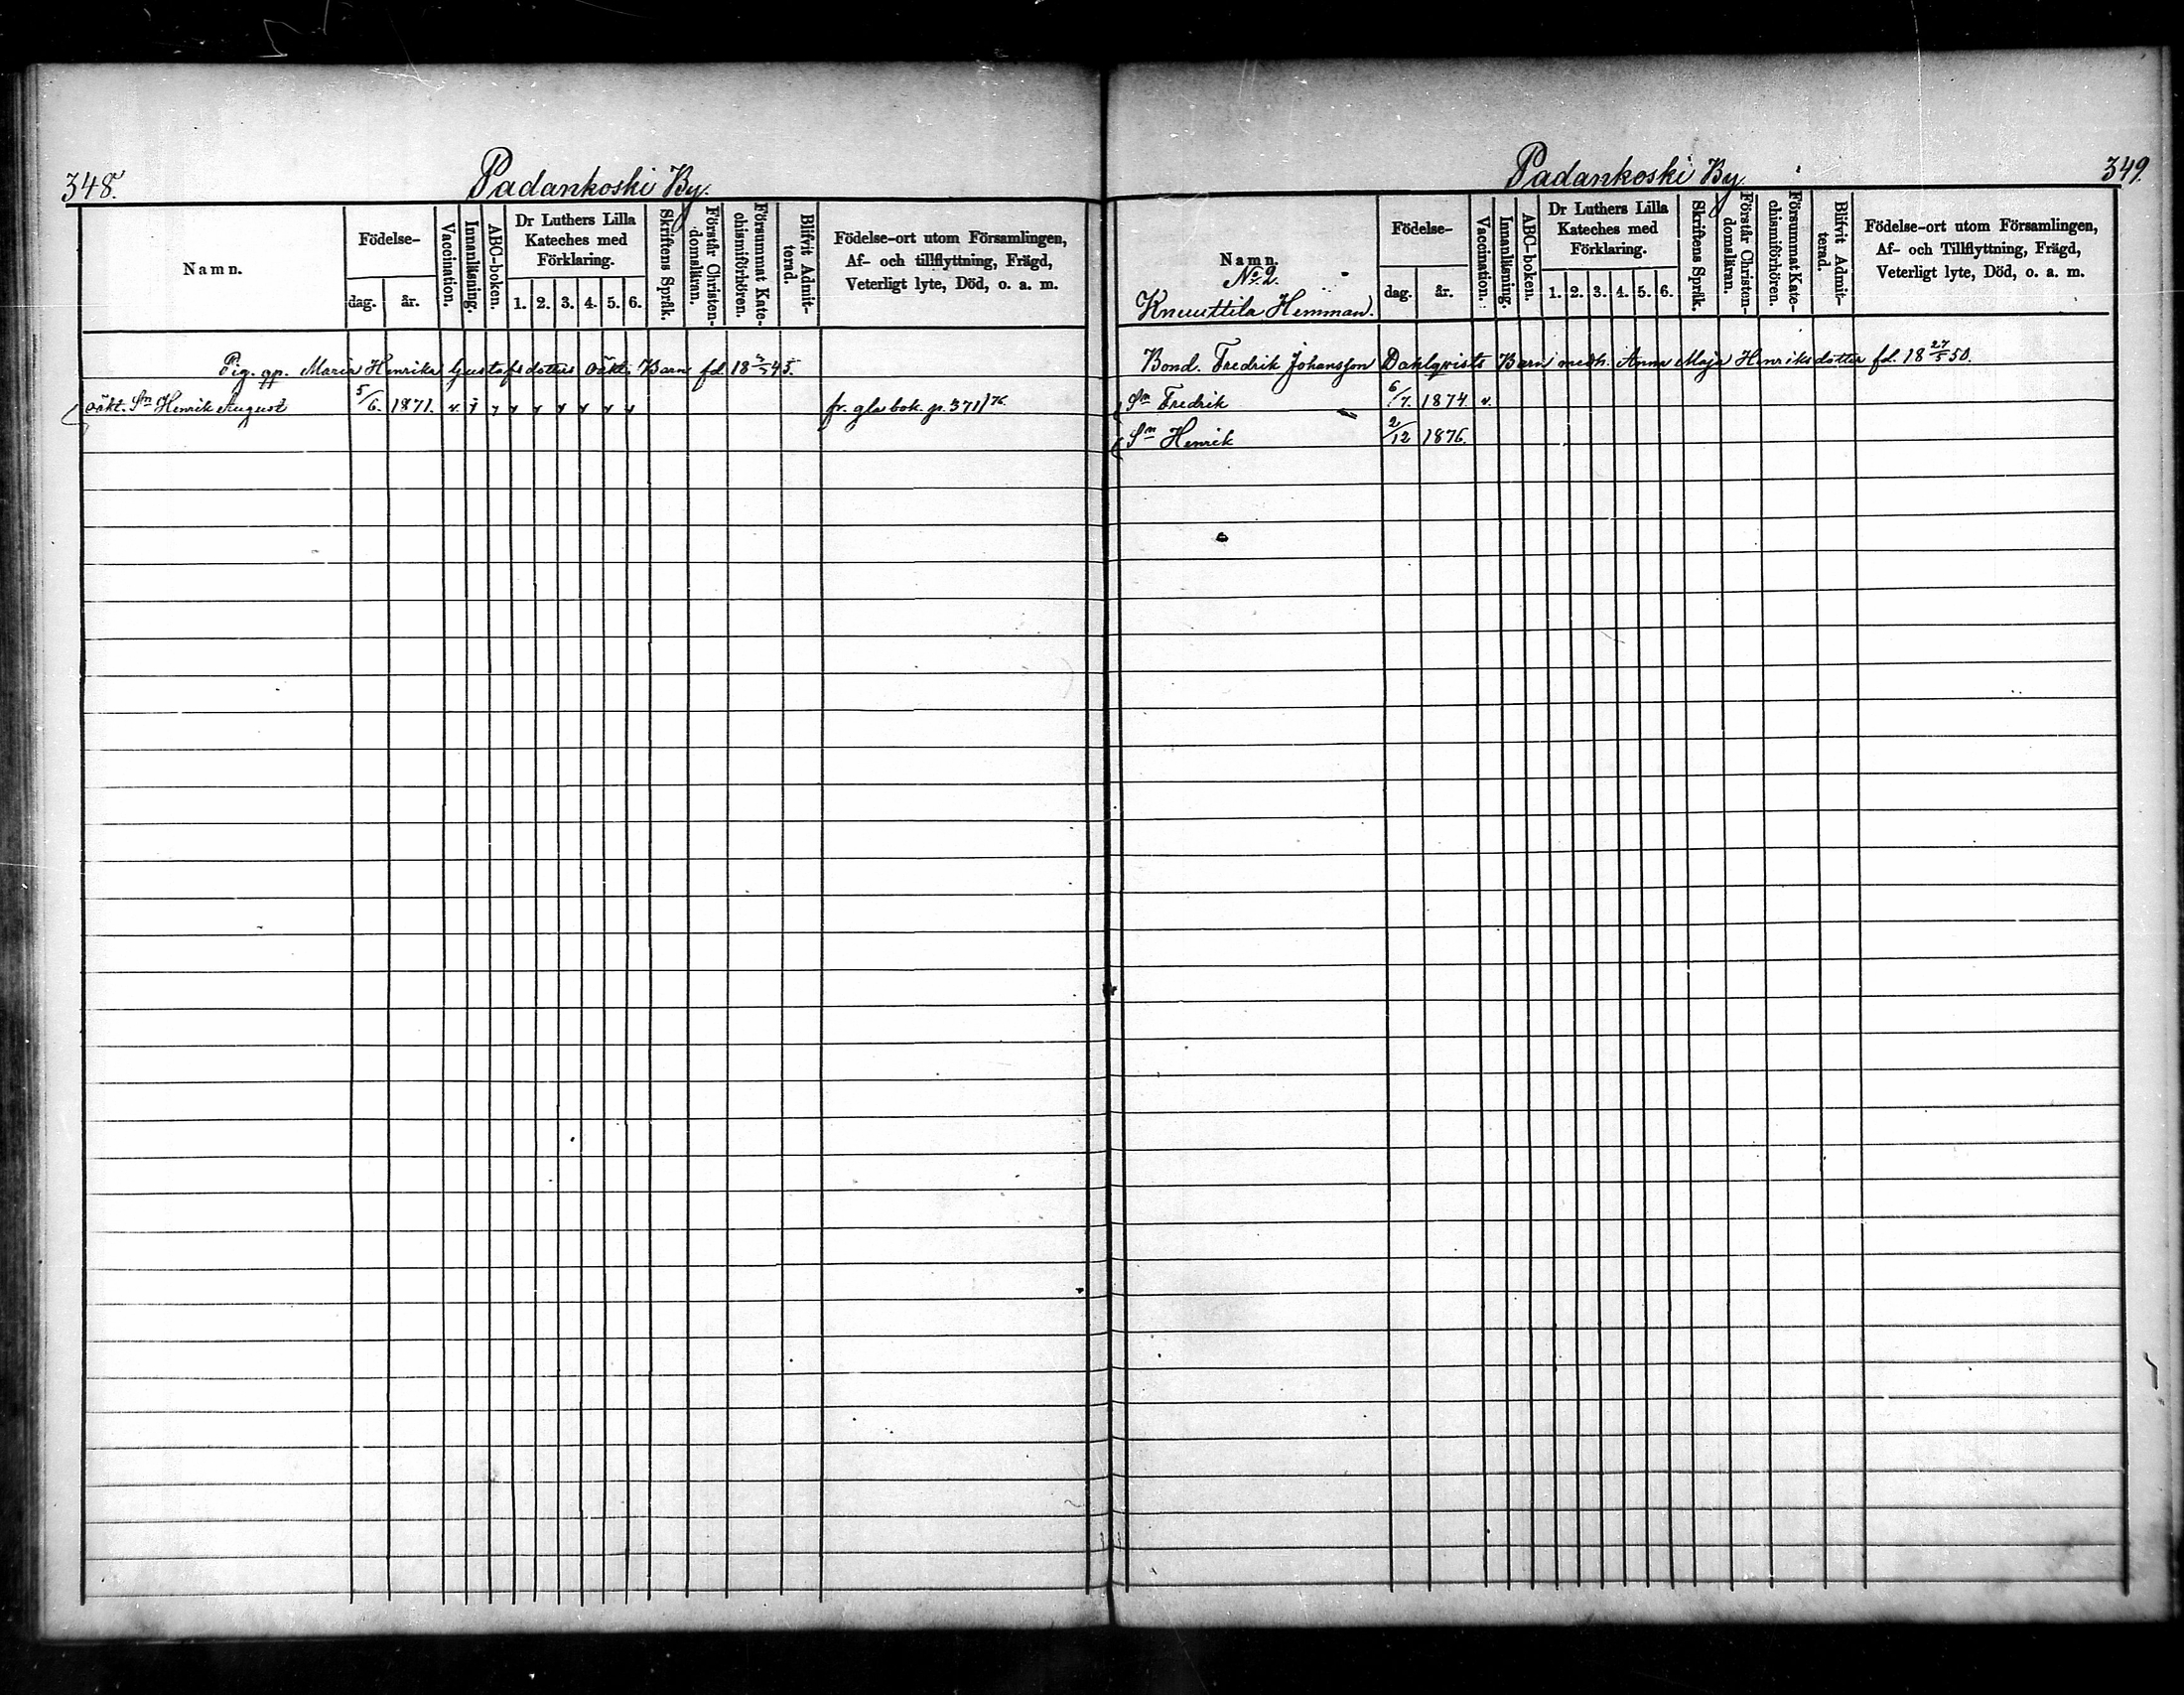 348.
Padankoski By.
Namn.
Födelse-
dag.
år.
Vaccination.
Innanläsning.
ABC-boken.
Dr Luthers Lilla
Kateches med
Förklaring.
1. 2. 3. 4. 5. 6.
Skriftens Språk.
Förstår Christen-
domsläran.
Försummat Kate-
chismiförhören.
Blifvit Admit-
terad.
Födelse-ort utom Församlingen,
Af- och tillflyttning, Frägd,
Veterligt lyte, Död, o. a. m.
Pig. qp. Maria Henrika Gustafsdotters oäkt. Barn fd. 18 45.
oäkt. Sn Henrik August 5/6. 1871. v. fr. gla bok. p. 371/76.
349.
Padankoski By.
Namn.
No 2.
Knuuttila Hemman.
Födelse-
dag.
år.
Vaccination.
Innanläsning.
ABC-boken.
Dr Luthers Lilla
Kateches med
Förklaring.
1. 2. 3. 4. 5. 6.
Skriftens Språk.
Förstår Christen-
domsläran.
Försummat Kate-
chismiförhören.
Blifvit Admit-
terad.
Födelse-ort utom Församlingen,
Af- och Tillflyttning, Frägd,
Veterligt lyte, Död, o. a. m.
Bond. Fredrik Johansson Dahlqvists Barn medh. Anna Maja Henriksdotter fd. 18 27/5 50.
Sn Fredrik 6/7. 1874 v.
Sn Henrik 2/12 1876.